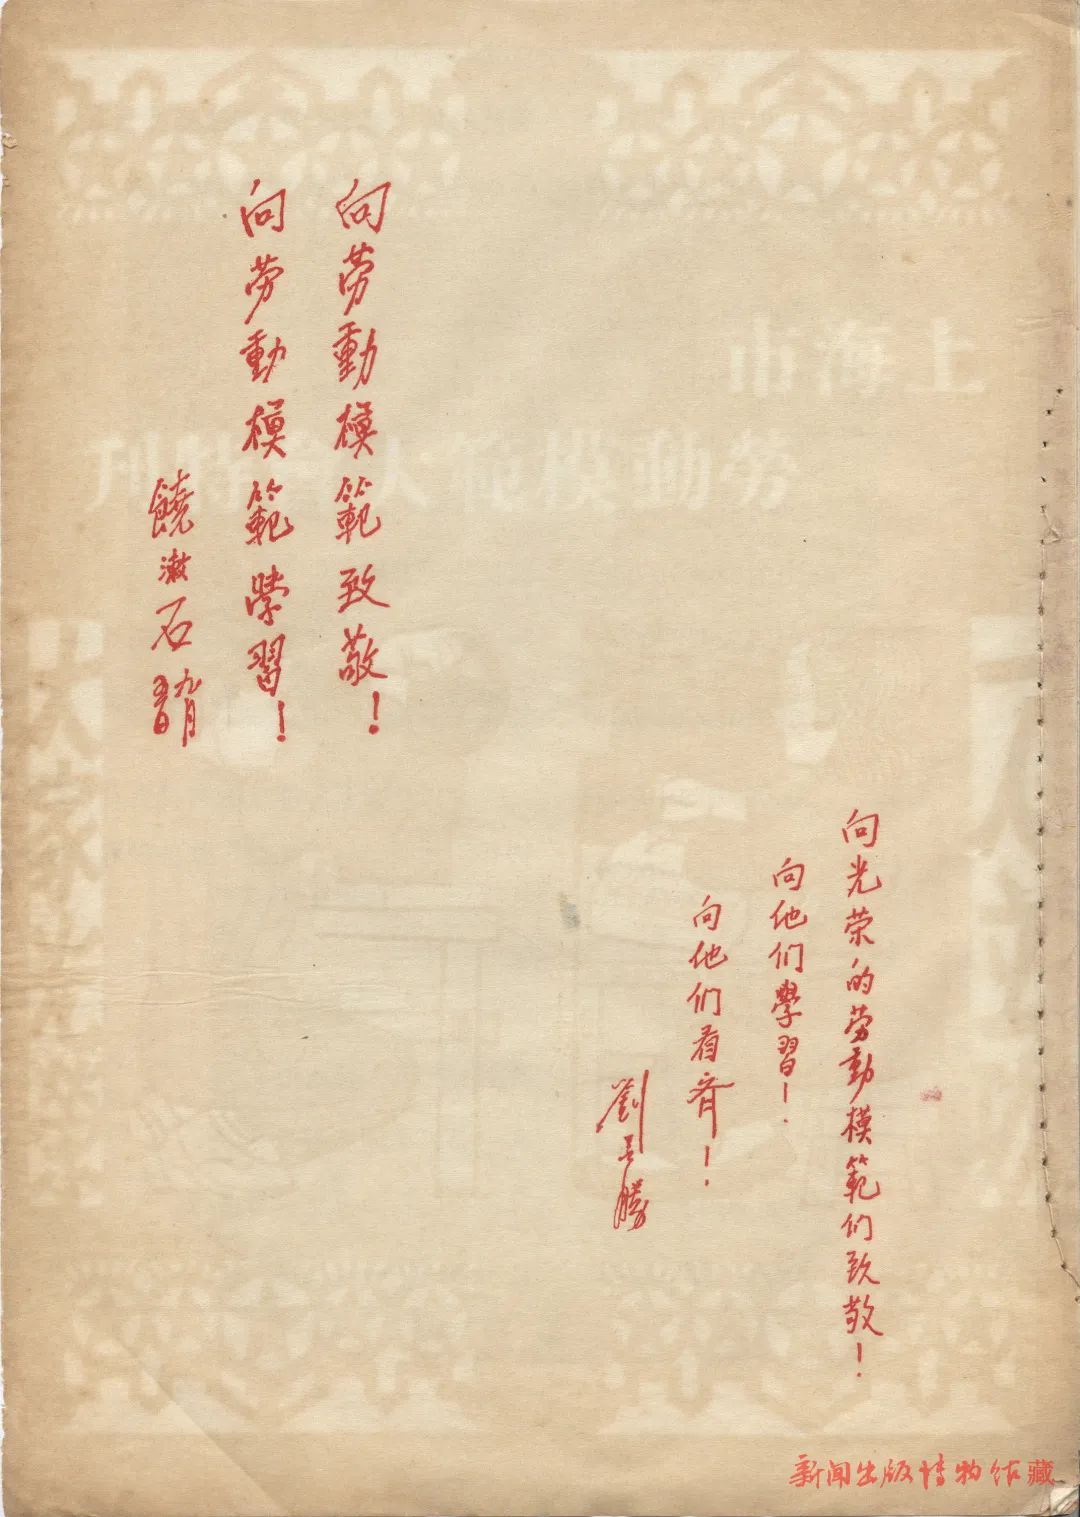 向劳動模範致敬！
向劳動模範學習！
饒漱石 九月五日
向光荣的劳動模範们致敬！
向他们學習！
向他们看齐！
劉長勝
新闻出版博物馆藏